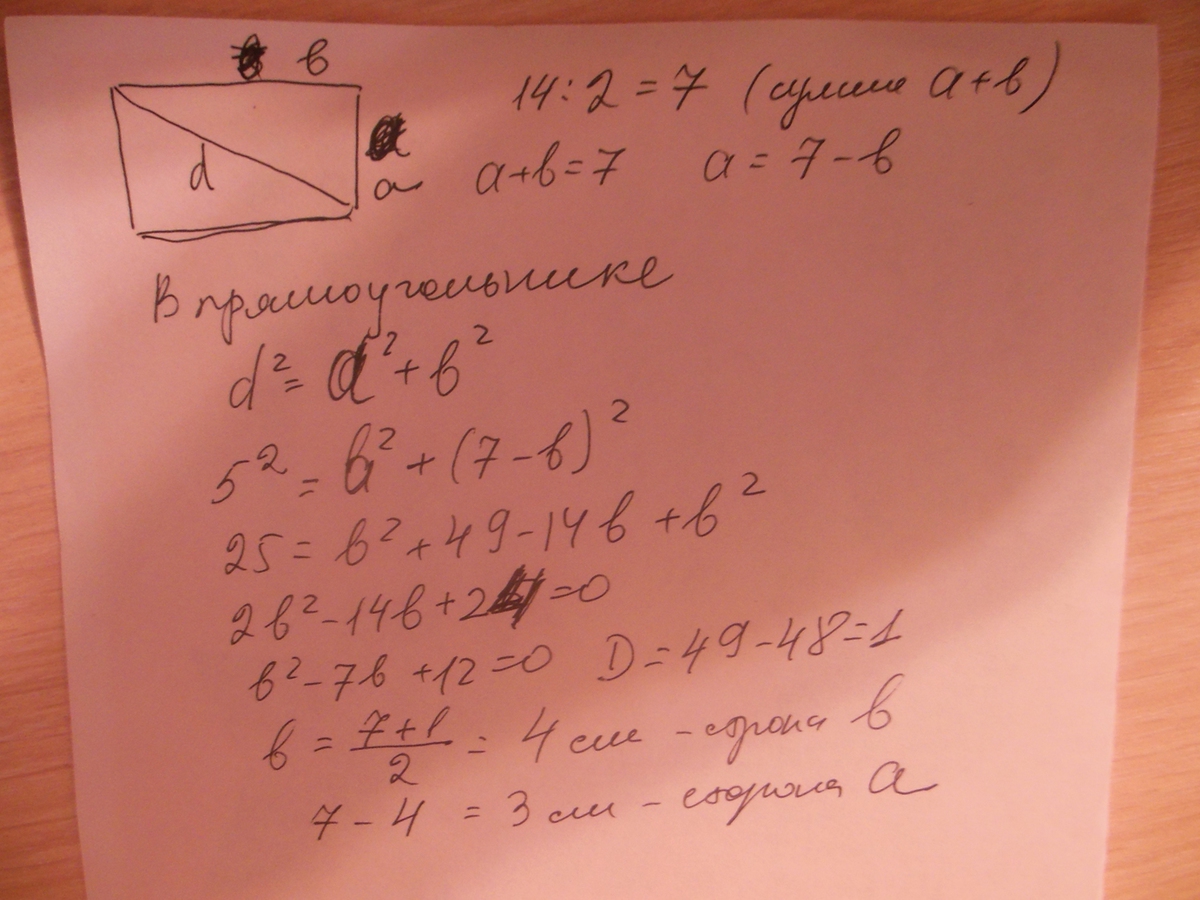 в
14:2=7 (сумма а+в)
d
а
а+в=7 а=7-в
В прямоугольнике
d²=а²+в²
5²=в²+(7-в)²
25=в²+49-14в+в²
2в²-14в+24=0
в²-7в+12=0 D=49-48=1
в=(7+1)/2=4 см - сторона в
7-4=3 см - сторона а